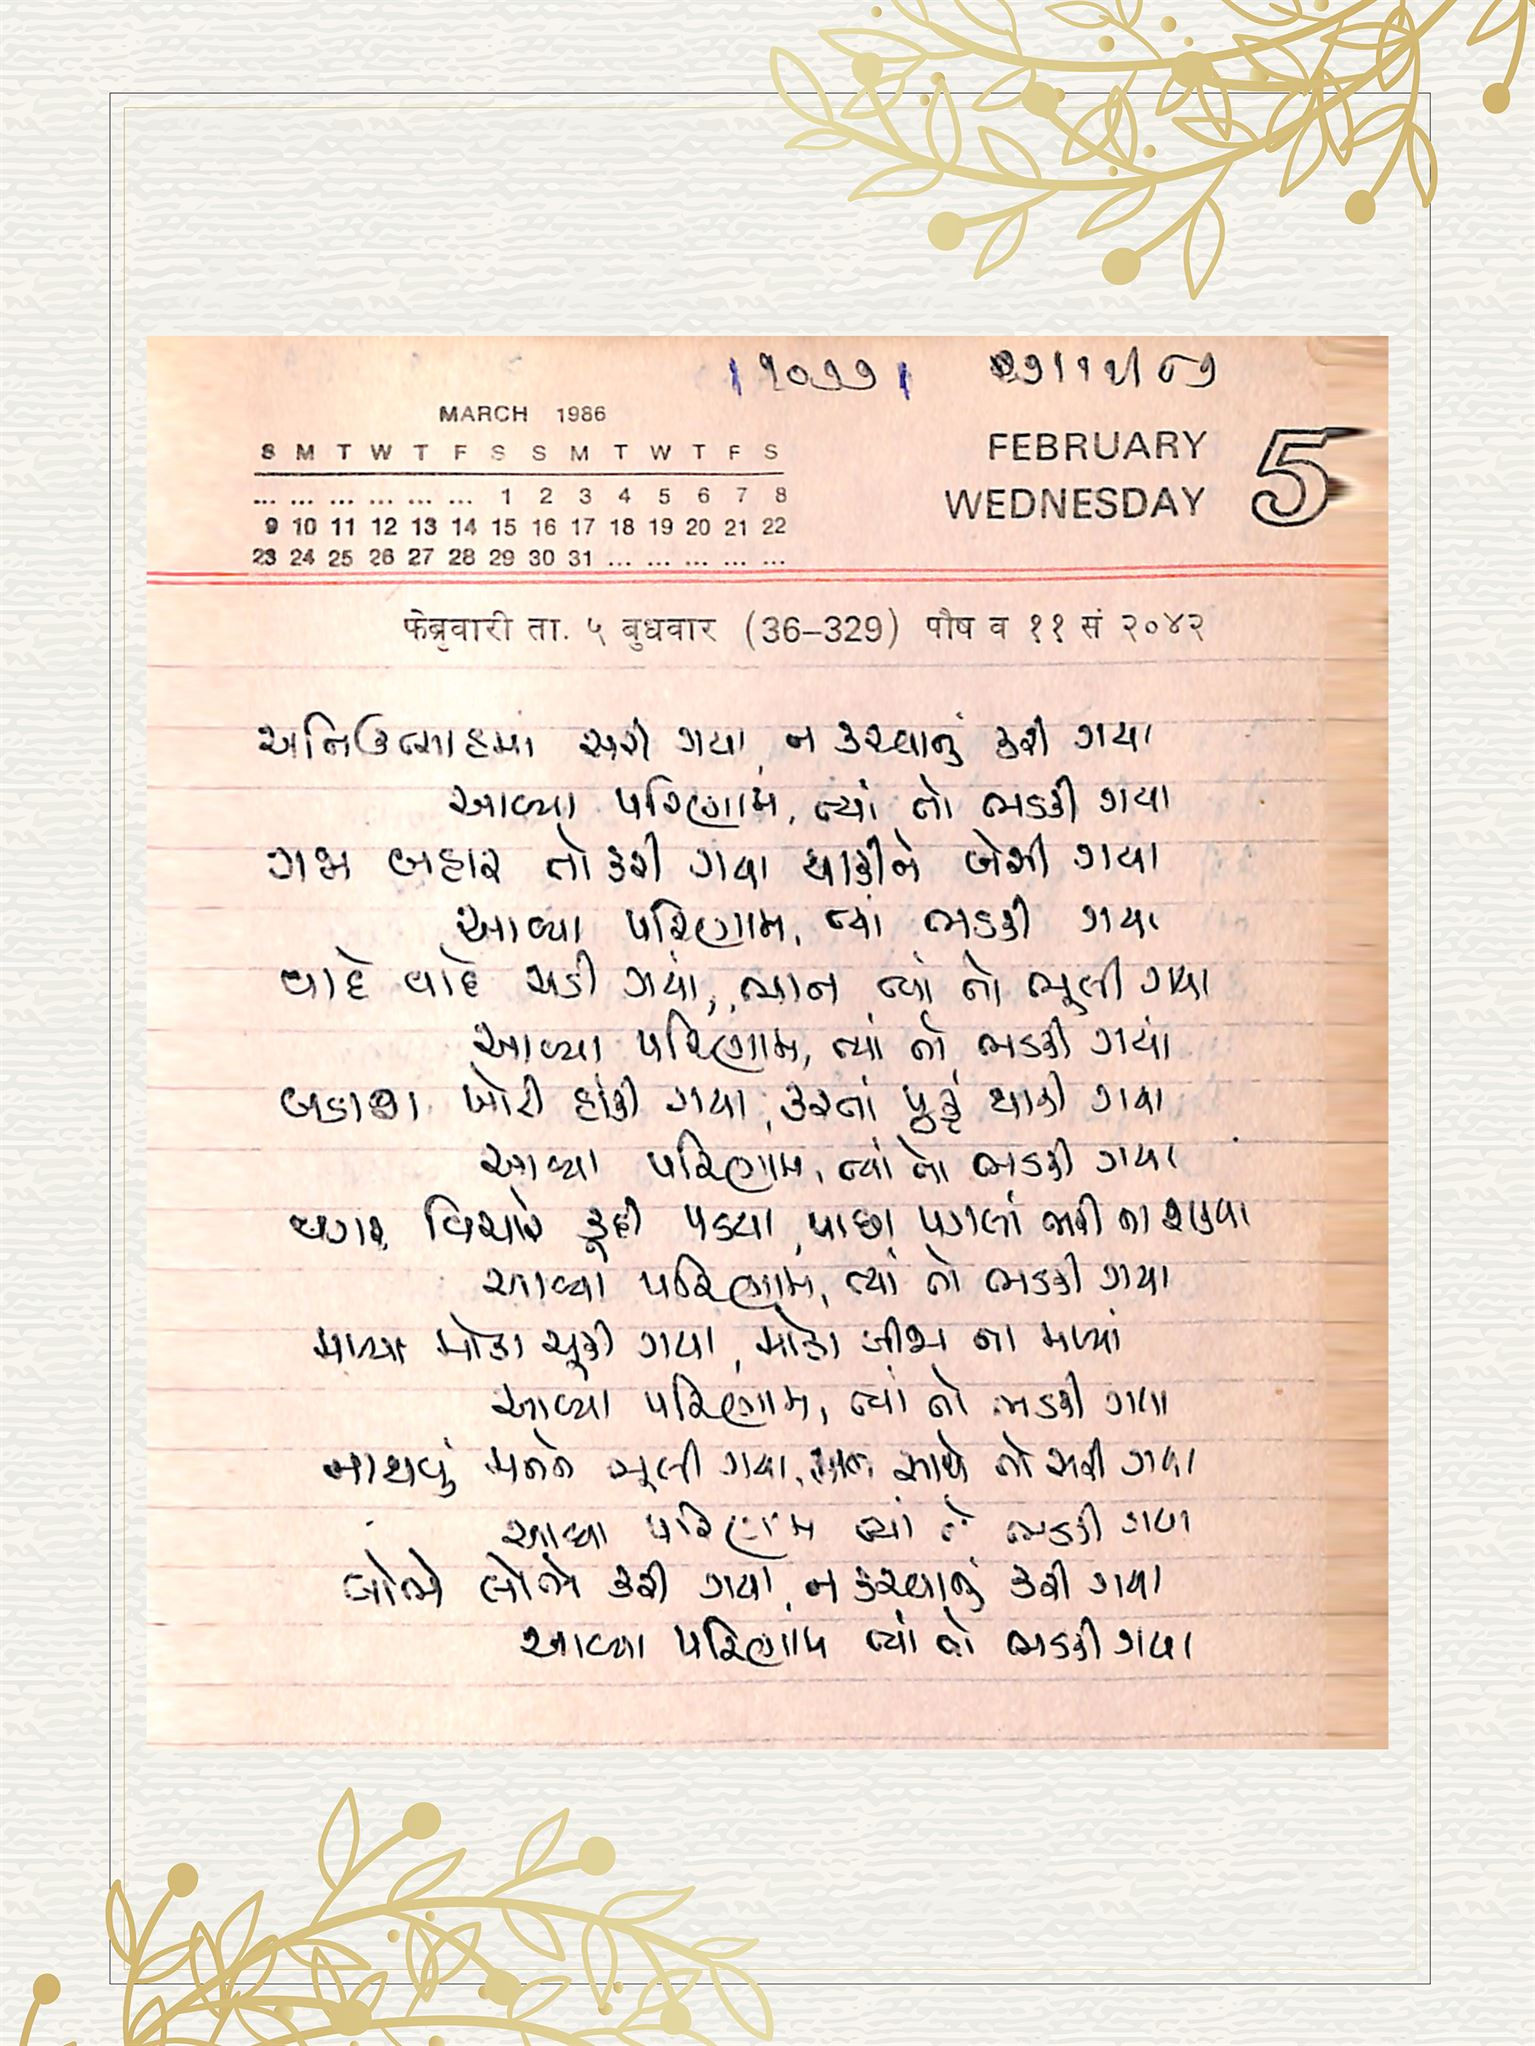 ૧૦૭૭
MARCH 1986
S M T W T F S S M T W T F S
... ... ... ... ... ... 1 2 3 4 5 6 7 8
9 10 11 12 13 14 15 16 17 18 19 20 21 22
23 24 25 26 27 28 29 30 31 ... ... ... ... ...
FEBRUARY
WEDNESDAY
5
फेब्रुवारी ता. ५ बुधवार (36–329) पौष व ११ सं २०४२
અતિઉત્સાહમાં સરી ગયા, ન કરવાનું કરી ગયા
આવ્યા પરિણામ, ત્યાં તો ભડકી ગયા
ગજા બહાર તો કરી ગયા થાકીને બેસી ગયા
આવ્યા પરિણામ, ત્યાં ભડકી ગયા
વાદે વાદે ચડી ગયાં, ભાન ત્યાં તો ભૂલી ગયા
આવ્યા પરિણામ, ત્યાં તો ભડકી ગયાં
બડાશ ખોરી હાંકી ગયા, કરતાં પુરું થાકી ગયા
આવ્યા પરિણામ, ત્યાં તો ભડકી ગયા
વગર વિચારે કૂદી પડયા, પાછા પગલાં ભરી ના શક્યા
આવ્યા પરિણામ, ત્યાં તો ભડકી ગયા
મળ્યા મોકા ચૂકી ગયા, મોકા બીજા ના મળ્યાં
આવ્યા પરિણામ, ત્યાં તો ભડકી ગયા
નાથવું મનને ભૂલી ગયા, સાથે તો સરી ગયા
આવ્યા પરિણામ ત્યાં તો ભડકી ગયા
લોભે લોભે કરી ગયા, ન કરવાનું કરી ગયા
આવ્યા પરિણામ ત્યાં તો ભડકી ગયા